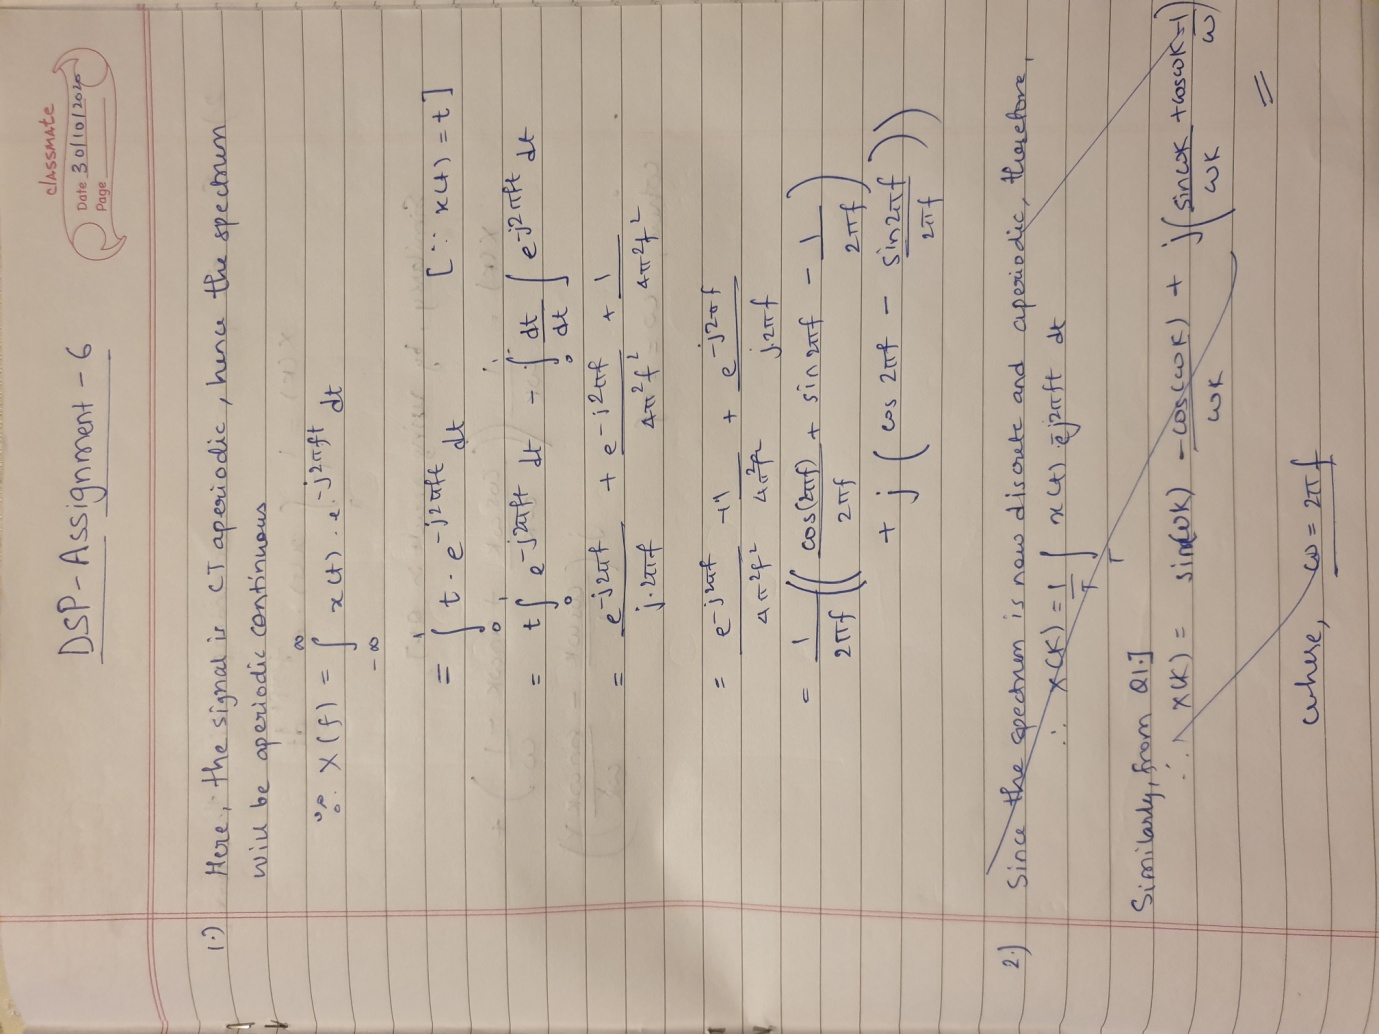 classmate
Date 30/10/2020
Page
DSP-Assignment-6
1.) Here, the signal is CT aperiodic, hence the spectrum
will be aperiodic continuous
∴ X(f) = ∫_{-∞}^{∞} x(t) · e^{-j2πft} dt
= ∫_0^1 t · e^{-j2πft} dt [∵ x(t) = t]
= t ∫_0^1 e^{-j2πft} dt - ∫_0^1 dt/dt ∫ e^{-j2πft} dt
= e^{-j2πf}/j·2πf + e^{-j2πf}/4π²f² + 1/4π²f²
= e^{-j2πf}/4π²f² - 1/4π²f² + e^{-j2πf}/j·2πf
= 1/2πf ((cos(2πf)/2πf + sin 2πf - 1/2πf)
+ j (cos 2πf - sin2πf/2πf))
2.) Since the spectrum is now discrete and aperiodic, therefore,
∴ X(K) = 1/T ∫_T x(t) · e^{-j2πft} dt
Similarly, from Q1.]
∴ X(K) = sin(ωK) - cos(ωK)/ωK + j(sinωK/ωK + cosωK-1/ω)
where, ω = 2πf